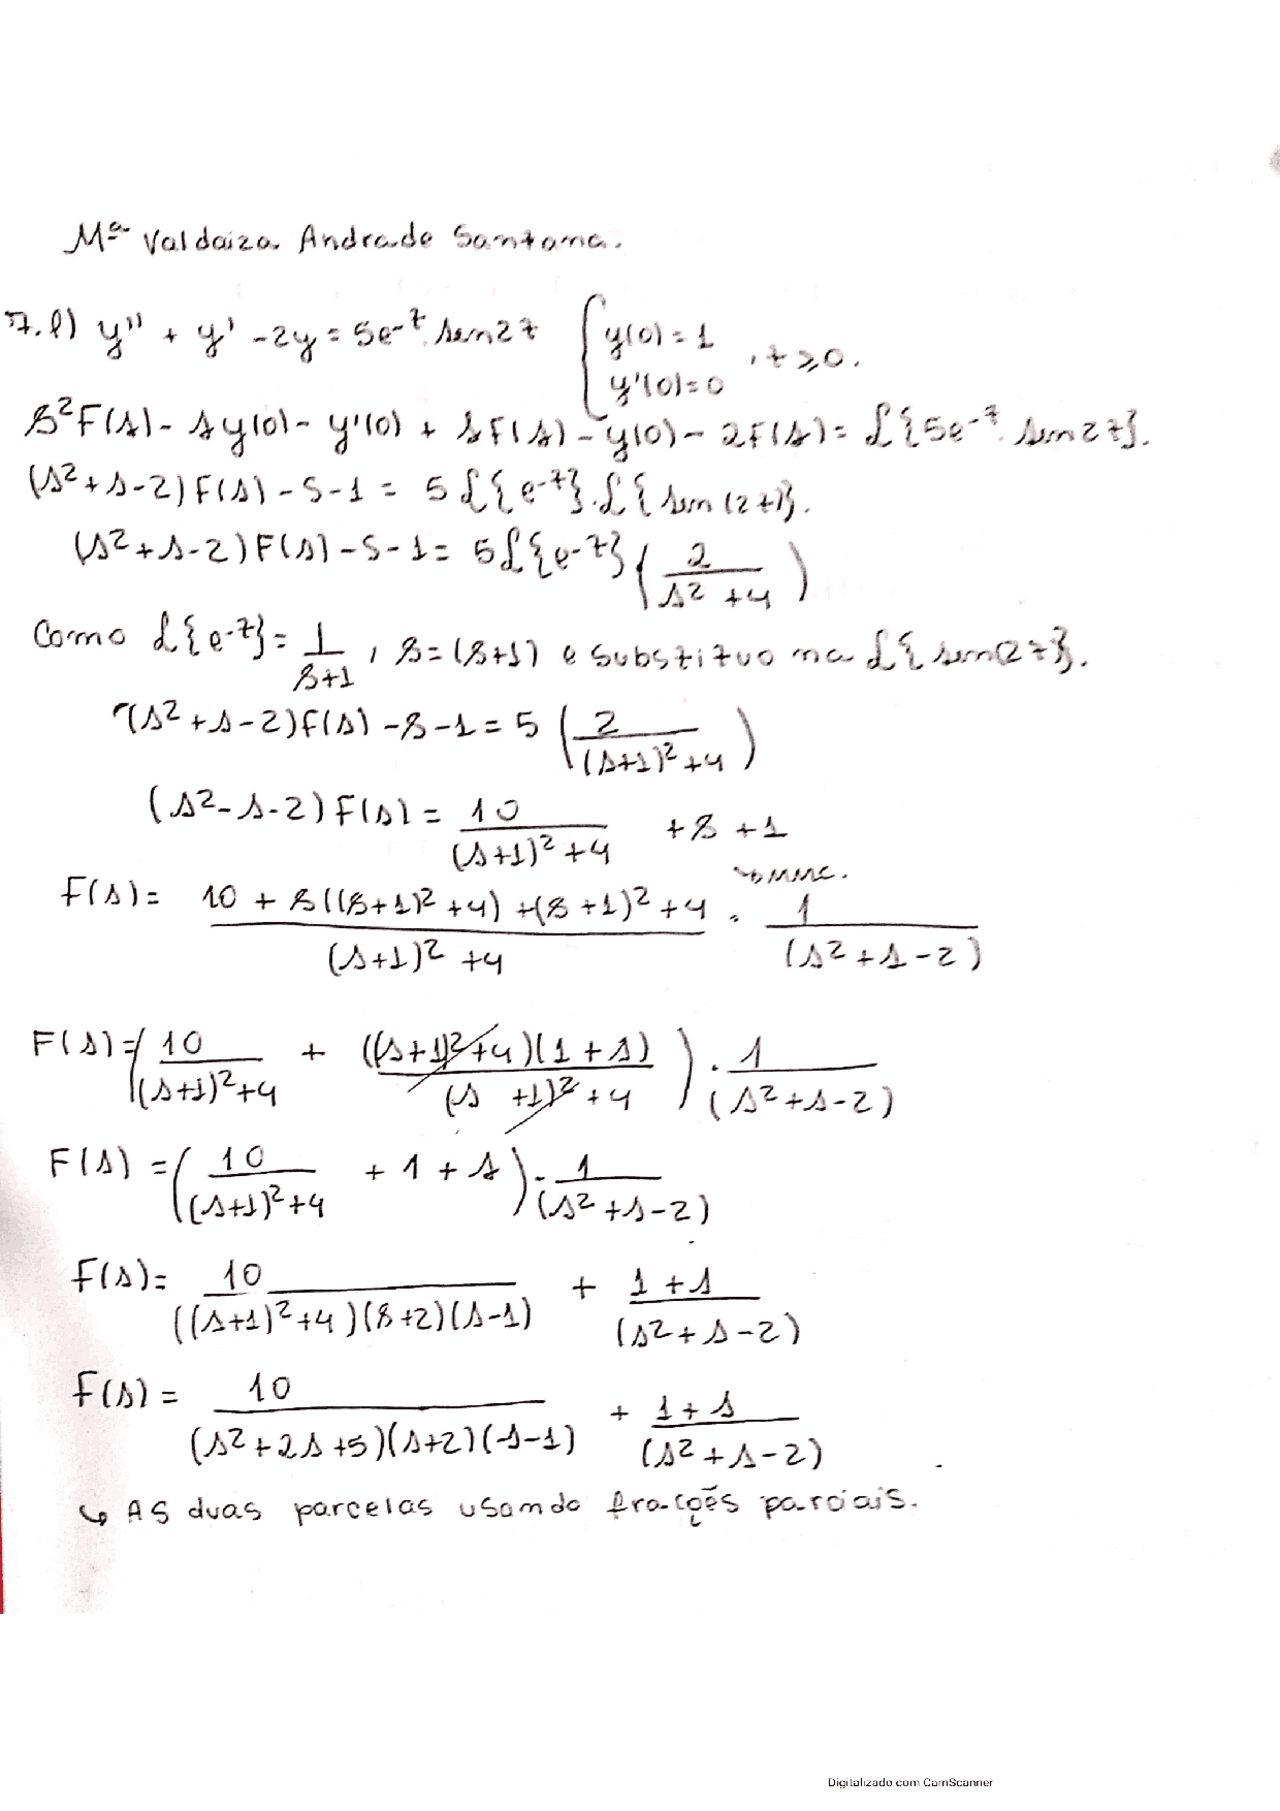 Mª Valdaiza Andrade Santana.
7.l) y'' + y' - 2y = 5e^-t. sen2t { y(0) = 1 , t ≥ 0.
y'(0) = 0
s²F(s) - s y(0) - y'(0) + sF(s) - y(0) - 2F(s) = ℒ{5e^-t. sen2t}.
(s² + s - 2)F(s) - s - 1 = 5ℒ{e^-t}.ℒ{sen(2t)}.
(s² + s - 2)F(s) - s - 1 = 5ℒ{e^-t}(2/(s² + 4))
Como ℒ{e^-t} = 1/(s+1), s = (s+1) e substituo na ℒ{sen(2t)}.
(s² + s - 2)F(s) - s - 1 = 5(2/((s+1)² + 4))
(s² - s - 2)F(s) = 10/((s+1)² + 4) + s + 1
→ mmc.
F(s) = (10 + s((s+1)² + 4) + (s+1)² + 4)/((s+1)² + 4) . 1/(s² + s - 2)
F(s) = (10/((s+1)² + 4) + ((s+1)² + 4)(1 + s)/((s+1)² + 4)) . 1/(s² + s - 2)
F(s) = (10/((s+1)² + 4) + 1 + s) . 1/(s² + s - 2)
F(s) = 10/(((s+1)² + 4)(s+2)(s-1)) + (1 + s)/(s² + s - 2)
F(s) = 10/((s² + 2s + 5)(s+2)(s-1)) + (1 + s)/(s² + s - 2)
↳ As duas parcelas usando frações parciais.
Digitalizado com CamScanner